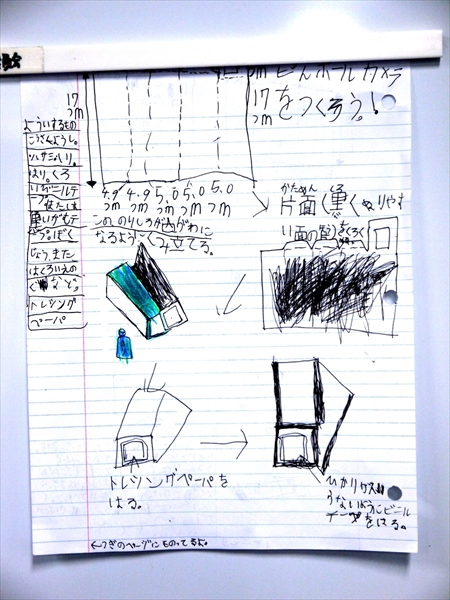 ピんホールカメラ
をつくろう!
17
cm
17
cm
よういするもの
こうさくようし。
ハサミ、のり。
はりorくろ
いビニールテ
ープまたは
黒いがむテ
ープぼく
じょうまた
はくろいえの
ぐなど。
トレシング
ペーパ
4.9 4.9 5.0 5.0 5.0
cm cm cm cm cm
このりしろが内がわに
なるようにくみ立てる。
かためん くろ
片面黒くぬりやす
トレシングペーパを
はる。
ひかりが入
らないようにビニール
テープをはる。
←つぎのページにものってるよ。